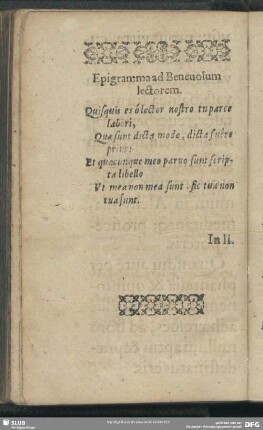 Epigramma ad Beneuolum
lectorem.
Quisquis es ô lector nostro tu parce
labori,
Quæ sunt dicta modo, dicta fuére
prius:
Et quæcunque meo paruo sunt scrip-
ta libello
Vt mea non mea sunt: sic tua non
tua sunt.
In li.
SLUB
DFG